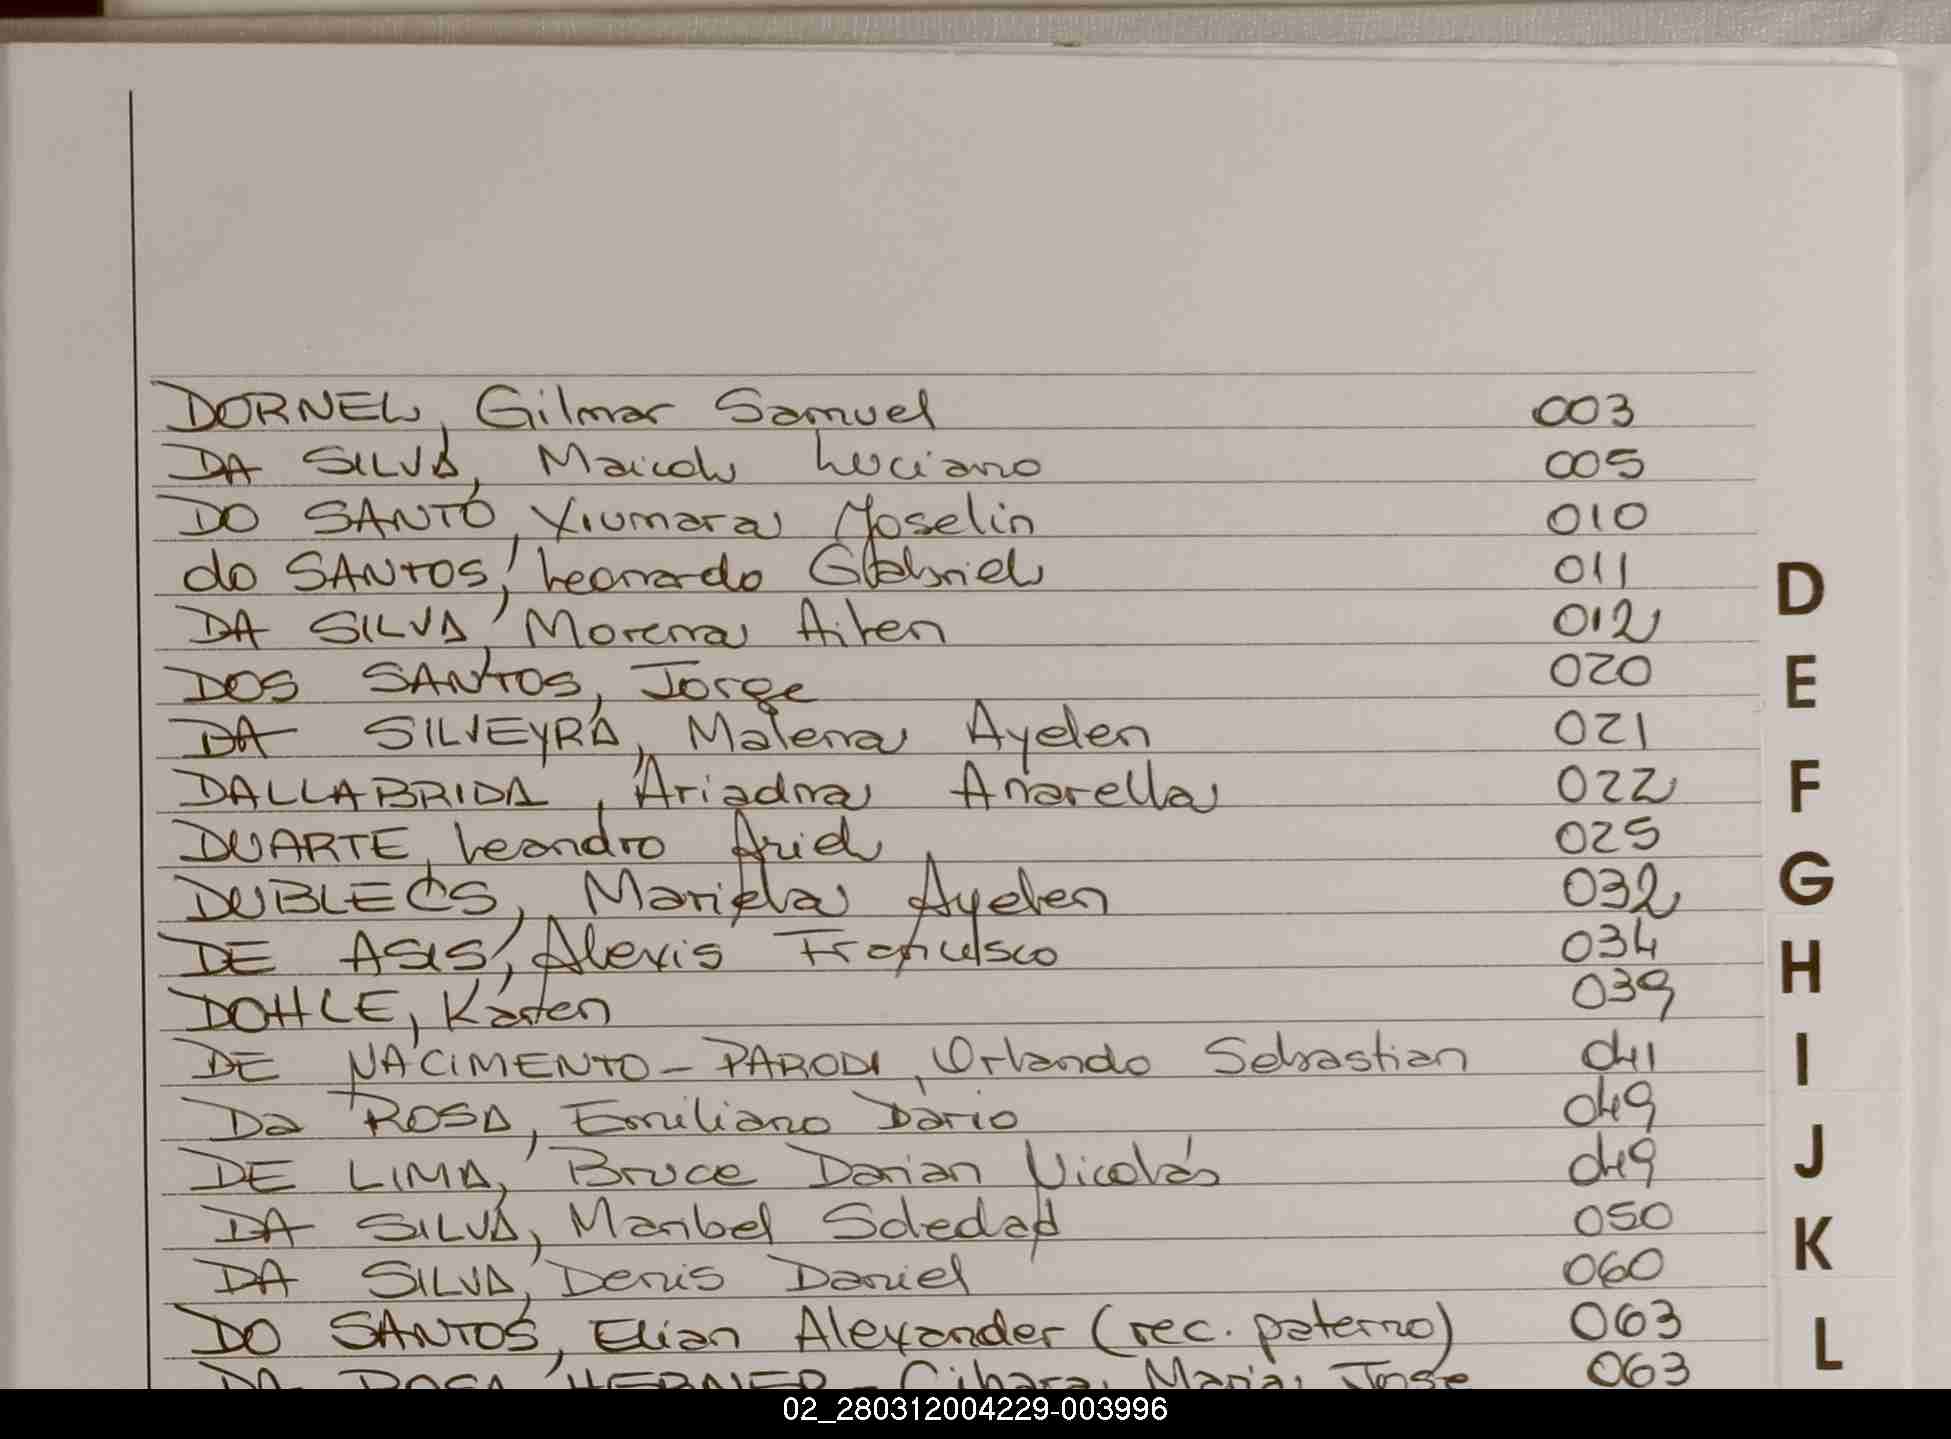 DORNEL, Gilmar Samuel 003
DA SILVA, Maicol Luciano 005
DO SANTO, Yiumara Yoselin 010
do SANTOS, Leonardo Gabriel 011
DA SILVA, Morena Ailen 012
DOS SANTOS, Jorge 020
DA SILVEYRA, Malena Ayelen 021
DALLABRIDA, Ariadna Anarella 022
DUARTE, Leandro Ariel 025
Mariela Ayelen 032
DE ASIS, Alexis Francisco 034
DOHLE, Karen 039
DE NACIMENTO - PARODI, Orlando Sebastian 041
Da ROSA, Emiliano Dario 049
DE LIMA, Bruce Darian Nicolás 049
DA SILVA, Maribel Soledad 050
DA SILVA, Denis Daniel 060
DO SANTOS, Elian Alexander (rec. paterno) 063
DA ROSA Maria Jose 063
D
E
F
G
H
I
J
K
L
02_280312004229-003996